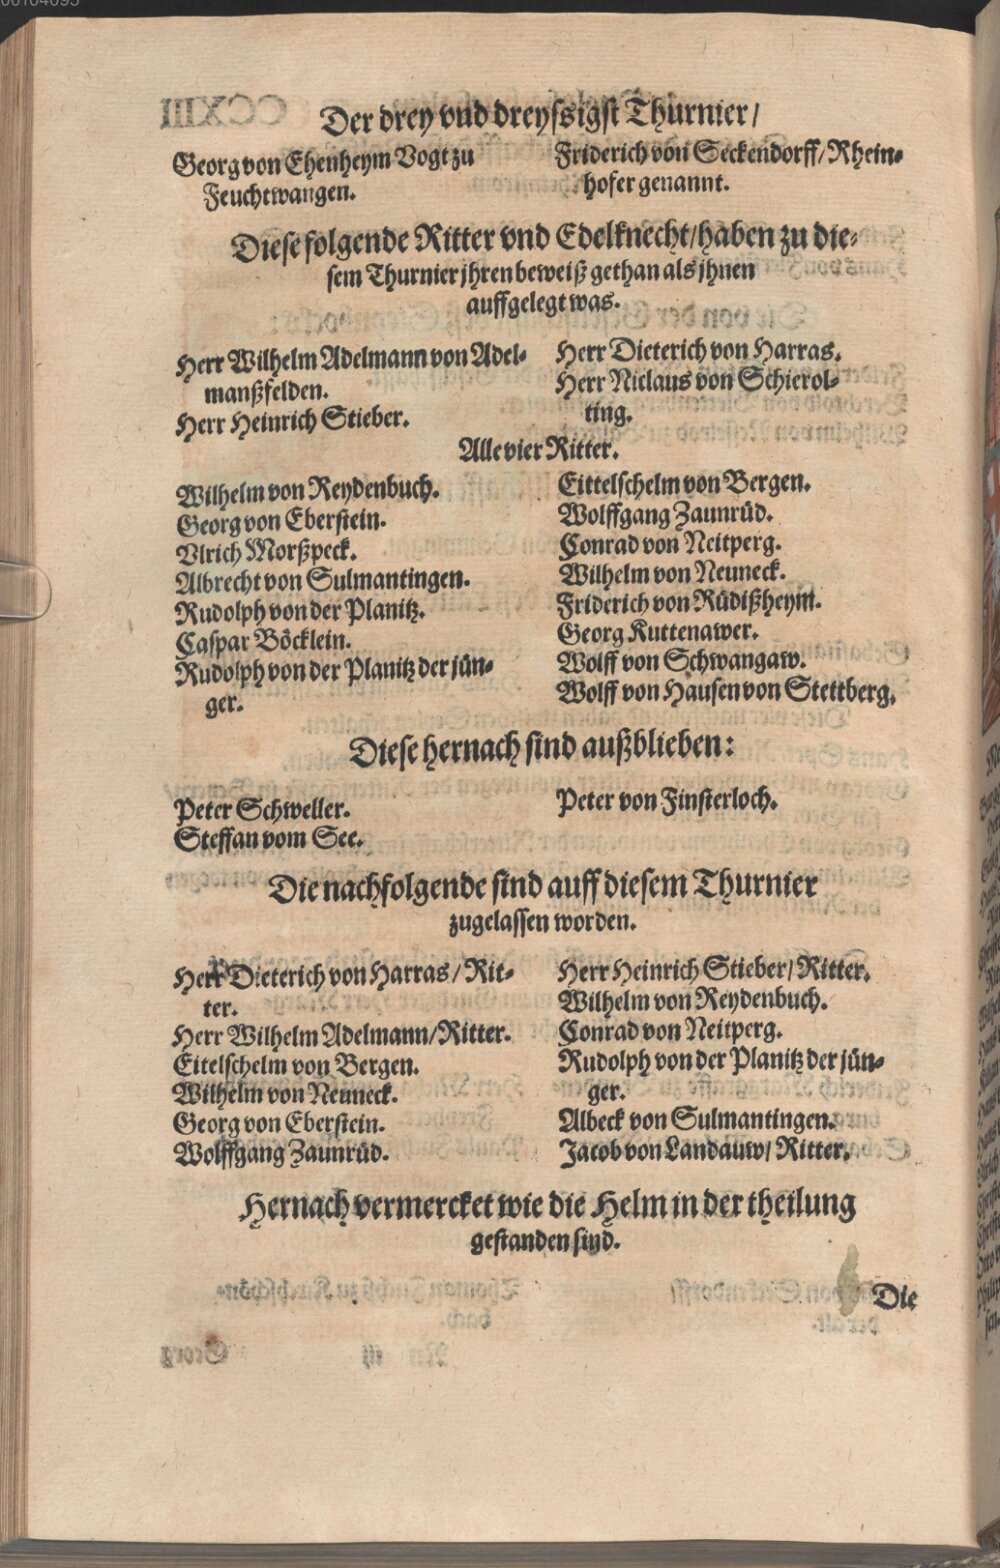 Der drey vnd dreyssigst Thurnier/
Georg von Ehenheym Vogt zu
Feuchtwangen.
Friderich von Seckendorff/Rhein-
hofer genannt.
Diese folgende Ritter vnd Edelknecht/haben zu die-
sem Thurnier jhren beweiß gethan als jhnen
auffgelegt was.
Herr Wilhelm Adelmann von Adel-
manßfelden.
Herr Heinrich Stieber.
Herr Dieterich von Harras.
Herr Niclaus von Schierol-
ting.
Alle vier Ritter.
Wilhelm von Reydenbuch.
Georg von Eberstein.
Vlrich Morßpeck.
Albrecht von Sulmantingen.
Rudolph von der Planitz.
Caspar Böcklein.
Rudolph von der Planitz der jün-
ger.
Eittelschelm von Bergen.
Wolffgang Zaunrüd.
Conrad von Neitperg.
Wilhelm von Neuneck.
Friderich von Rüdißheym.
Georg Kuttenawer.
Wolff von Schwangaw.
Wolff von Hausen von Stettberg.
Diese hernach sind außblieben:
Peter Schweller.
Steffan vom See.
Peter von Finsterloch.
Die nachfolgende sind auff diesem Thurnier
zugelassen worden.
Herr Dieterich von Harras/Rit-
ter.
Herr Wilhelm Adelmann/Ritter.
Eitelschelm von Bergen.
Wilhelm von Neuneck.
Georg von Eberstein.
Wolffgang Zaunrüd.
Herr Heinrich Stieber/Ritter.
Wilhelm von Reydenbuch.
Conrad von Neitperg.
Rudolph von der Planitz der jün-
ger.
Albeck von Sulmantingen.
Jacob von Landauw/Ritter.
Hernach vermercket wie die Helm in der theilung
gestanden sind.
Die